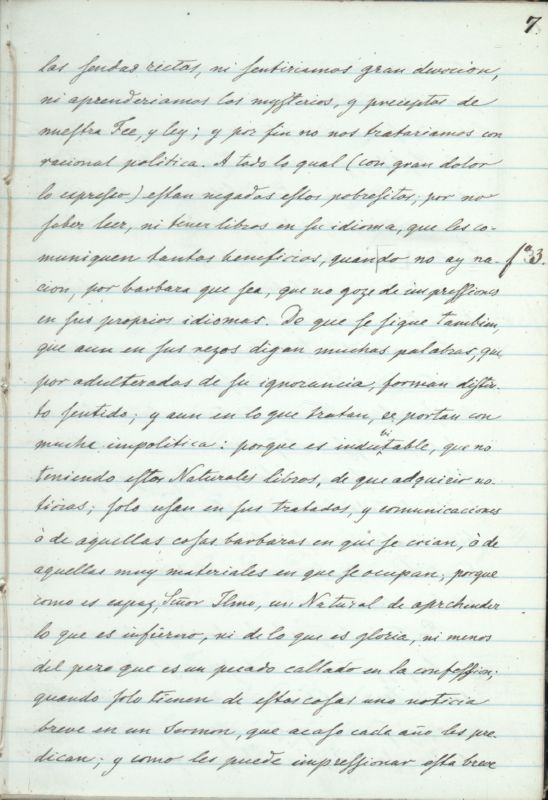 7
las sendas rectas, ni sentiriamos gran devocion,
ni aprenderiamos los mysterios, y preceptos de
nuestra Fee, y ley; y por fin no nos tratariamos con
racional politica. A todo lo qual (con gran dolor
lo expresso) estan negados estos pobresitos; por no
saber leer, ni tener libros en su idioma, que les co-
muniquen tantos beneficios, quando no ay na- fo. 3.
cion, por barbara que sea, que no goze de impressiones
en sus proprios idiomas. De que se sigue tambien,
que aun en sus rezos digan muchas palabras, que
por adulteradas de su ignorancia, forman distin-
to sentido; y aun en lo que tratan, se portan con
mucha impolitica: porque es indubitable, que no
teniendo estos Naturales libros, de que adquirir no-
ticias; solo usan en sus tratados, y comunicaciones
ò de aquellas cosas barbaras en que se crian, ò de
aquellas muy materiales en que se ocupan; porque
como es capaz, Señor Ilmo, un Natural de aprehender
lo que es infierno, ni de lo que es gloria, ni menos
del pero que es un pecado callado en la confession;
quando solo tienen de estas cosas una noticia
breve en un Sermon, que acaso cada año les pre-
dican; y como les puede impressionar esta breve